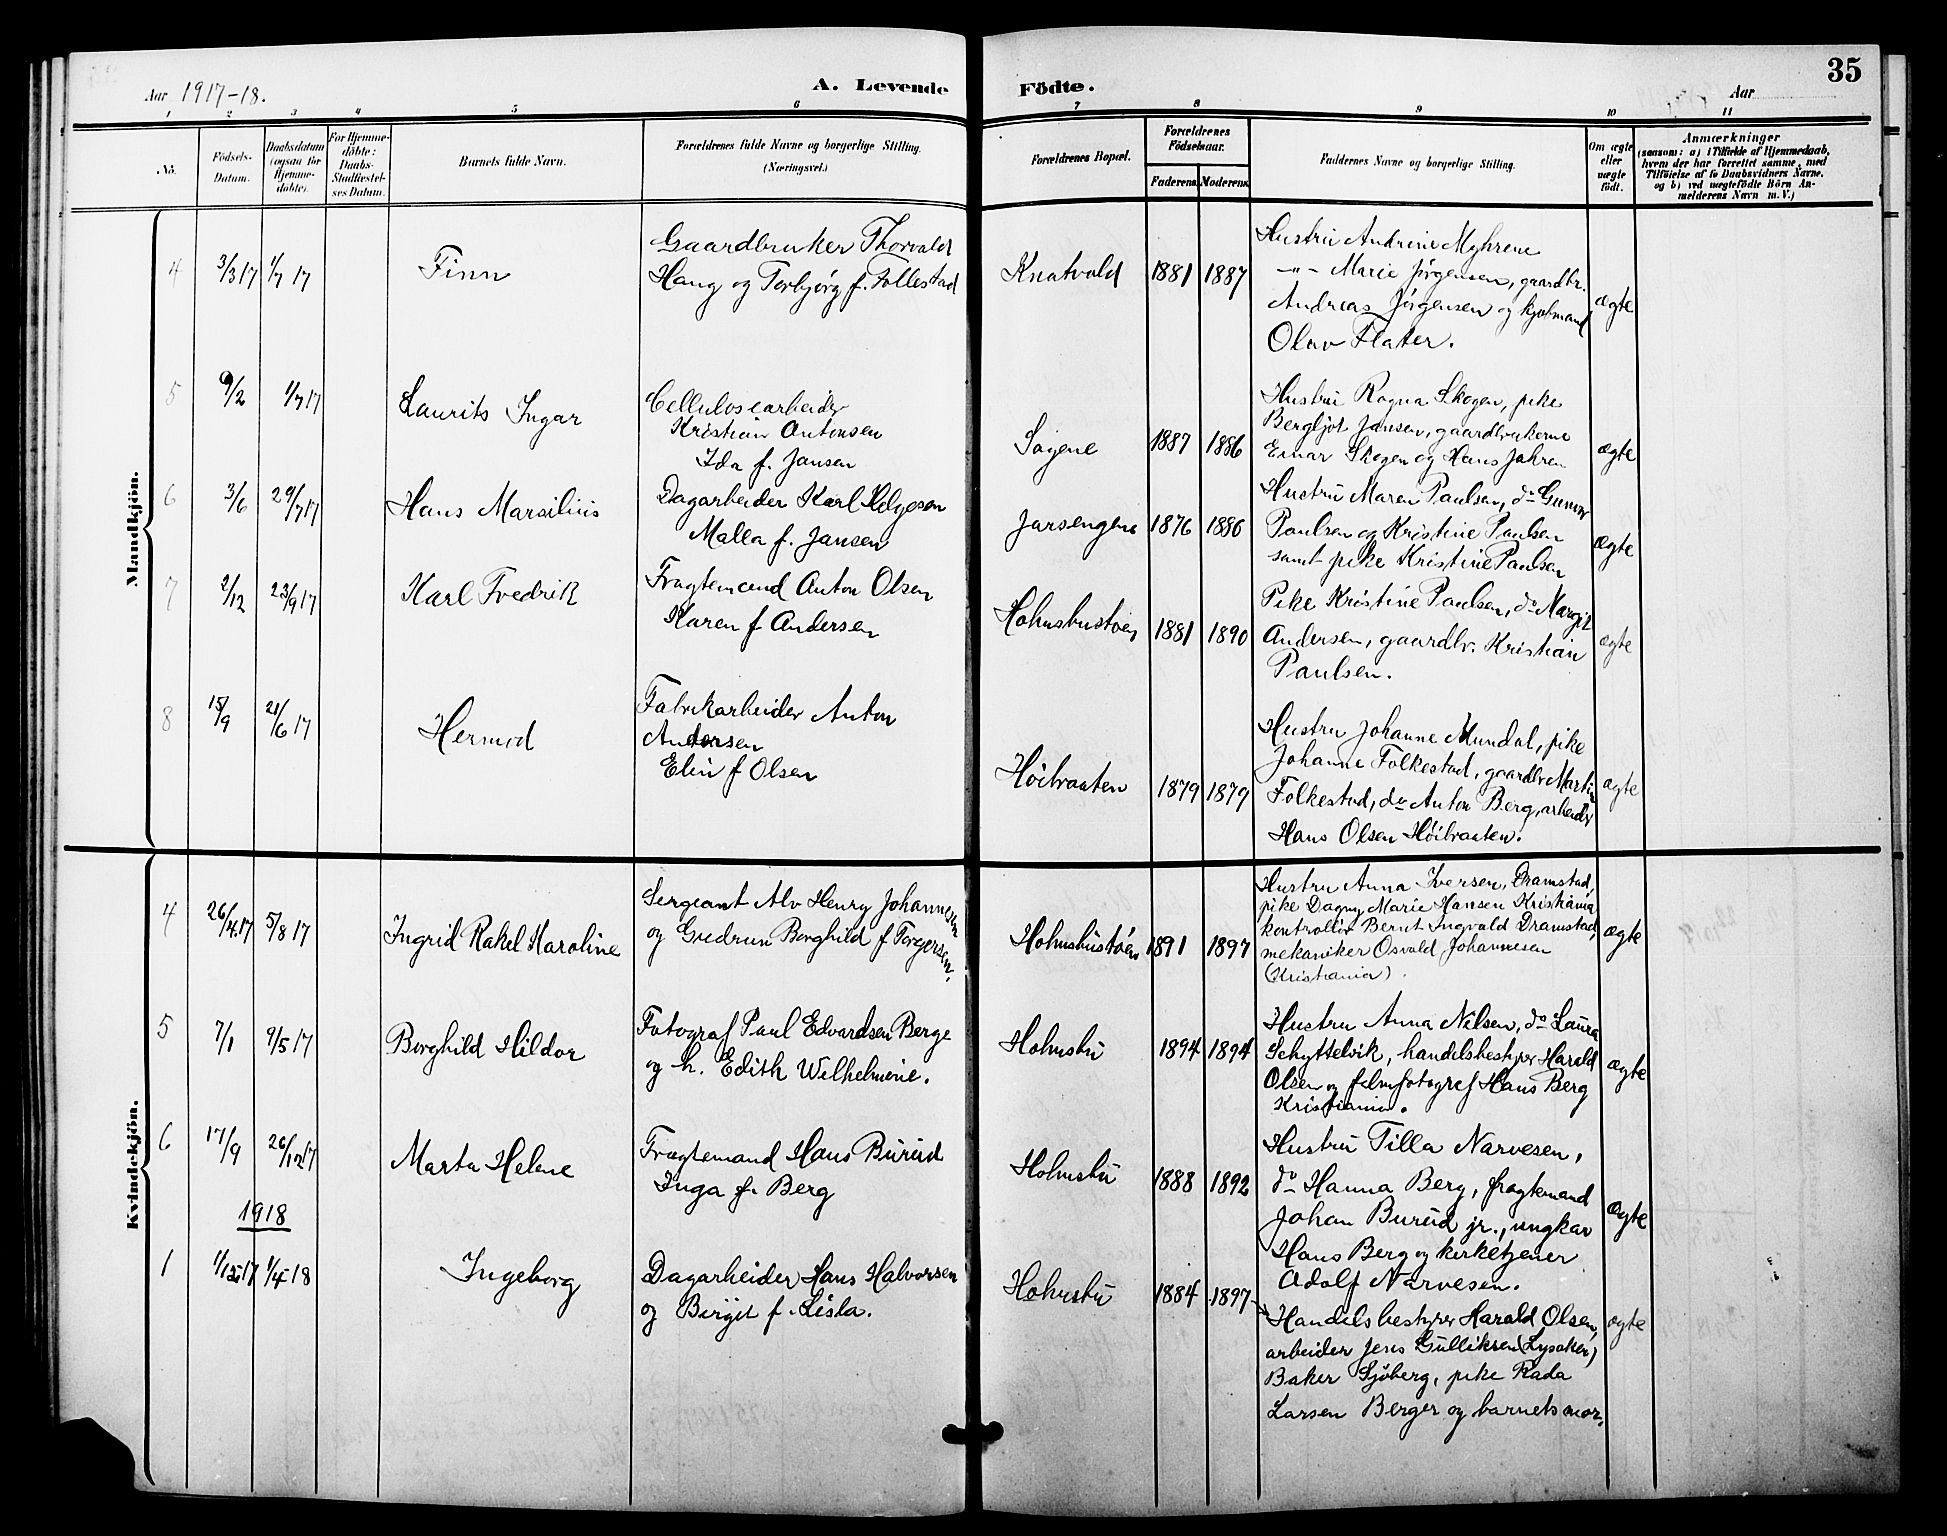 35
Aar 1917-18.
A. Levende Födte.
Aar
1 2 3 4 5 6 7 8 9 10 11
No.
Födsels-Datum.
Daabsdatum (ogsaa for Hjemme-döbte).
For Hjemme-döbte: Daabs-Stadfæstel-ses Datum.
Barnets fulde Navn.
Forældrenes fulde Navne og borgerlige Stilling.
(Næringsvei.)
Forældrenes Bopæl.
Forældrenes Födselsaar.
Faderens. Moderens.
Faddernes Navne og borgerlige Stilling.
Om ægte eller uægte født.
Anmærkninger
(saasom: a) i Tilfælde af Hjemmedaab,
hvem der har forrettet samme, med
Tilföielse af to Daabsvidners Navne,
og b) ved uægtefödte Börn An-
melderens Navn m. V.)
Mandkjön.
4 3/3 17 1/7 17 Finn
Gaardbruker Thorvald
Haug og Torbjørg f. Follestad
Knatvold 1881 1887
Hustru Andrine Myhrene
-"- Marie Jørgensen, gaardbr.
Andreas Jørgensen og kjøbmand
Olav Flater.
ægte
5 9/2 1/7 17 Laurits Ingar
Cellulosearbeider
Kristian Antonsen
Ida f. Jansen
Sagene 1887 1886
Hustru Ragna Skogen, pike
Bergljot Jansen, gaardbrukerne
Einar Skogen og Hans Jahren
ægte
6 3/6 29/7 17 Hans Marsilius
Dagarbeider Karl Helgesen
Malla f. Jansen
Jarsengene 1876 1886
Hustru Maren Paulsen, do Gunvor
Paulsen og Kristine Paulsen
samt pike Kristine Paulsen
ægte
7 2/12 23/9 17 Karl Fredrik
Fragtemand Anton Olsen
Karen f Andersen
Holmsbustøen 1881 1890
Pike Kristine Paulsen, do Margit
Andersen, gaardbr. Kristian
Paulsen.
ægte
8 15/9 21/6 17 Hermod
Fabrikarbeider Anton
Andersen
Elin f Olsen
Høibraaten 1879 1879
Hustru Johanne Mundal, pike
Johanne Folkestad, gaardbr Martin
Folkestad, do Anton Berg, arbeider
Hans Olsen Høibraaten.
ægte
Kvindekjön.
4 26/4 17 5/8 17 Ingrid Rakel Karoline
Sergeant Alv Henry Johannesen
og Gudrun Borghild f Torgersen.
Holmsbustøen 1891 1897
Hustru Anna Iversen, Dramstad,
pike Dagny Marie Hansen Kristiania
kontrollør Bernt Ingvald Dramstad,
mekaniker Osvald Johannesen
(Kristiania).
ægte
5 7/1 9/5 17 Borghild Hildor
Fotograf Paul Edvardsen Berge
og h. Edith Wilhelmine.
Holmsbu 1894 1894
Hustru Anna Nilsen, do Laura
Schyttelvik, handelsbestyrer Harald
Olsen og filmfotograf Hans Berg
Kristiania.
ægte
6 17/9 26/12 17 Marta Helene
Fragtemand Hans Burud
Inga f. Berg
Holmsbu 1888 1892
Hustru Tilla Narvesen,
do Hanna Berg, fragtemand
Johan Burud jr., ungkar
Hans Berg og kirketjener
Adolf Narvesen.
ægte
1918
1 1/12 17 1/4 18 Ingeborg
Dagarbeider Hans Halvorsen
og Birgit f. Lisla.
Holmsbu 1884 1897
Handelsbestyrer Harald Olsen,
arbeider Jens Gulliksen (Lysaker)
Baker Sjöberg, pike Rada
Larsen Berger og barnets mor.
ægte